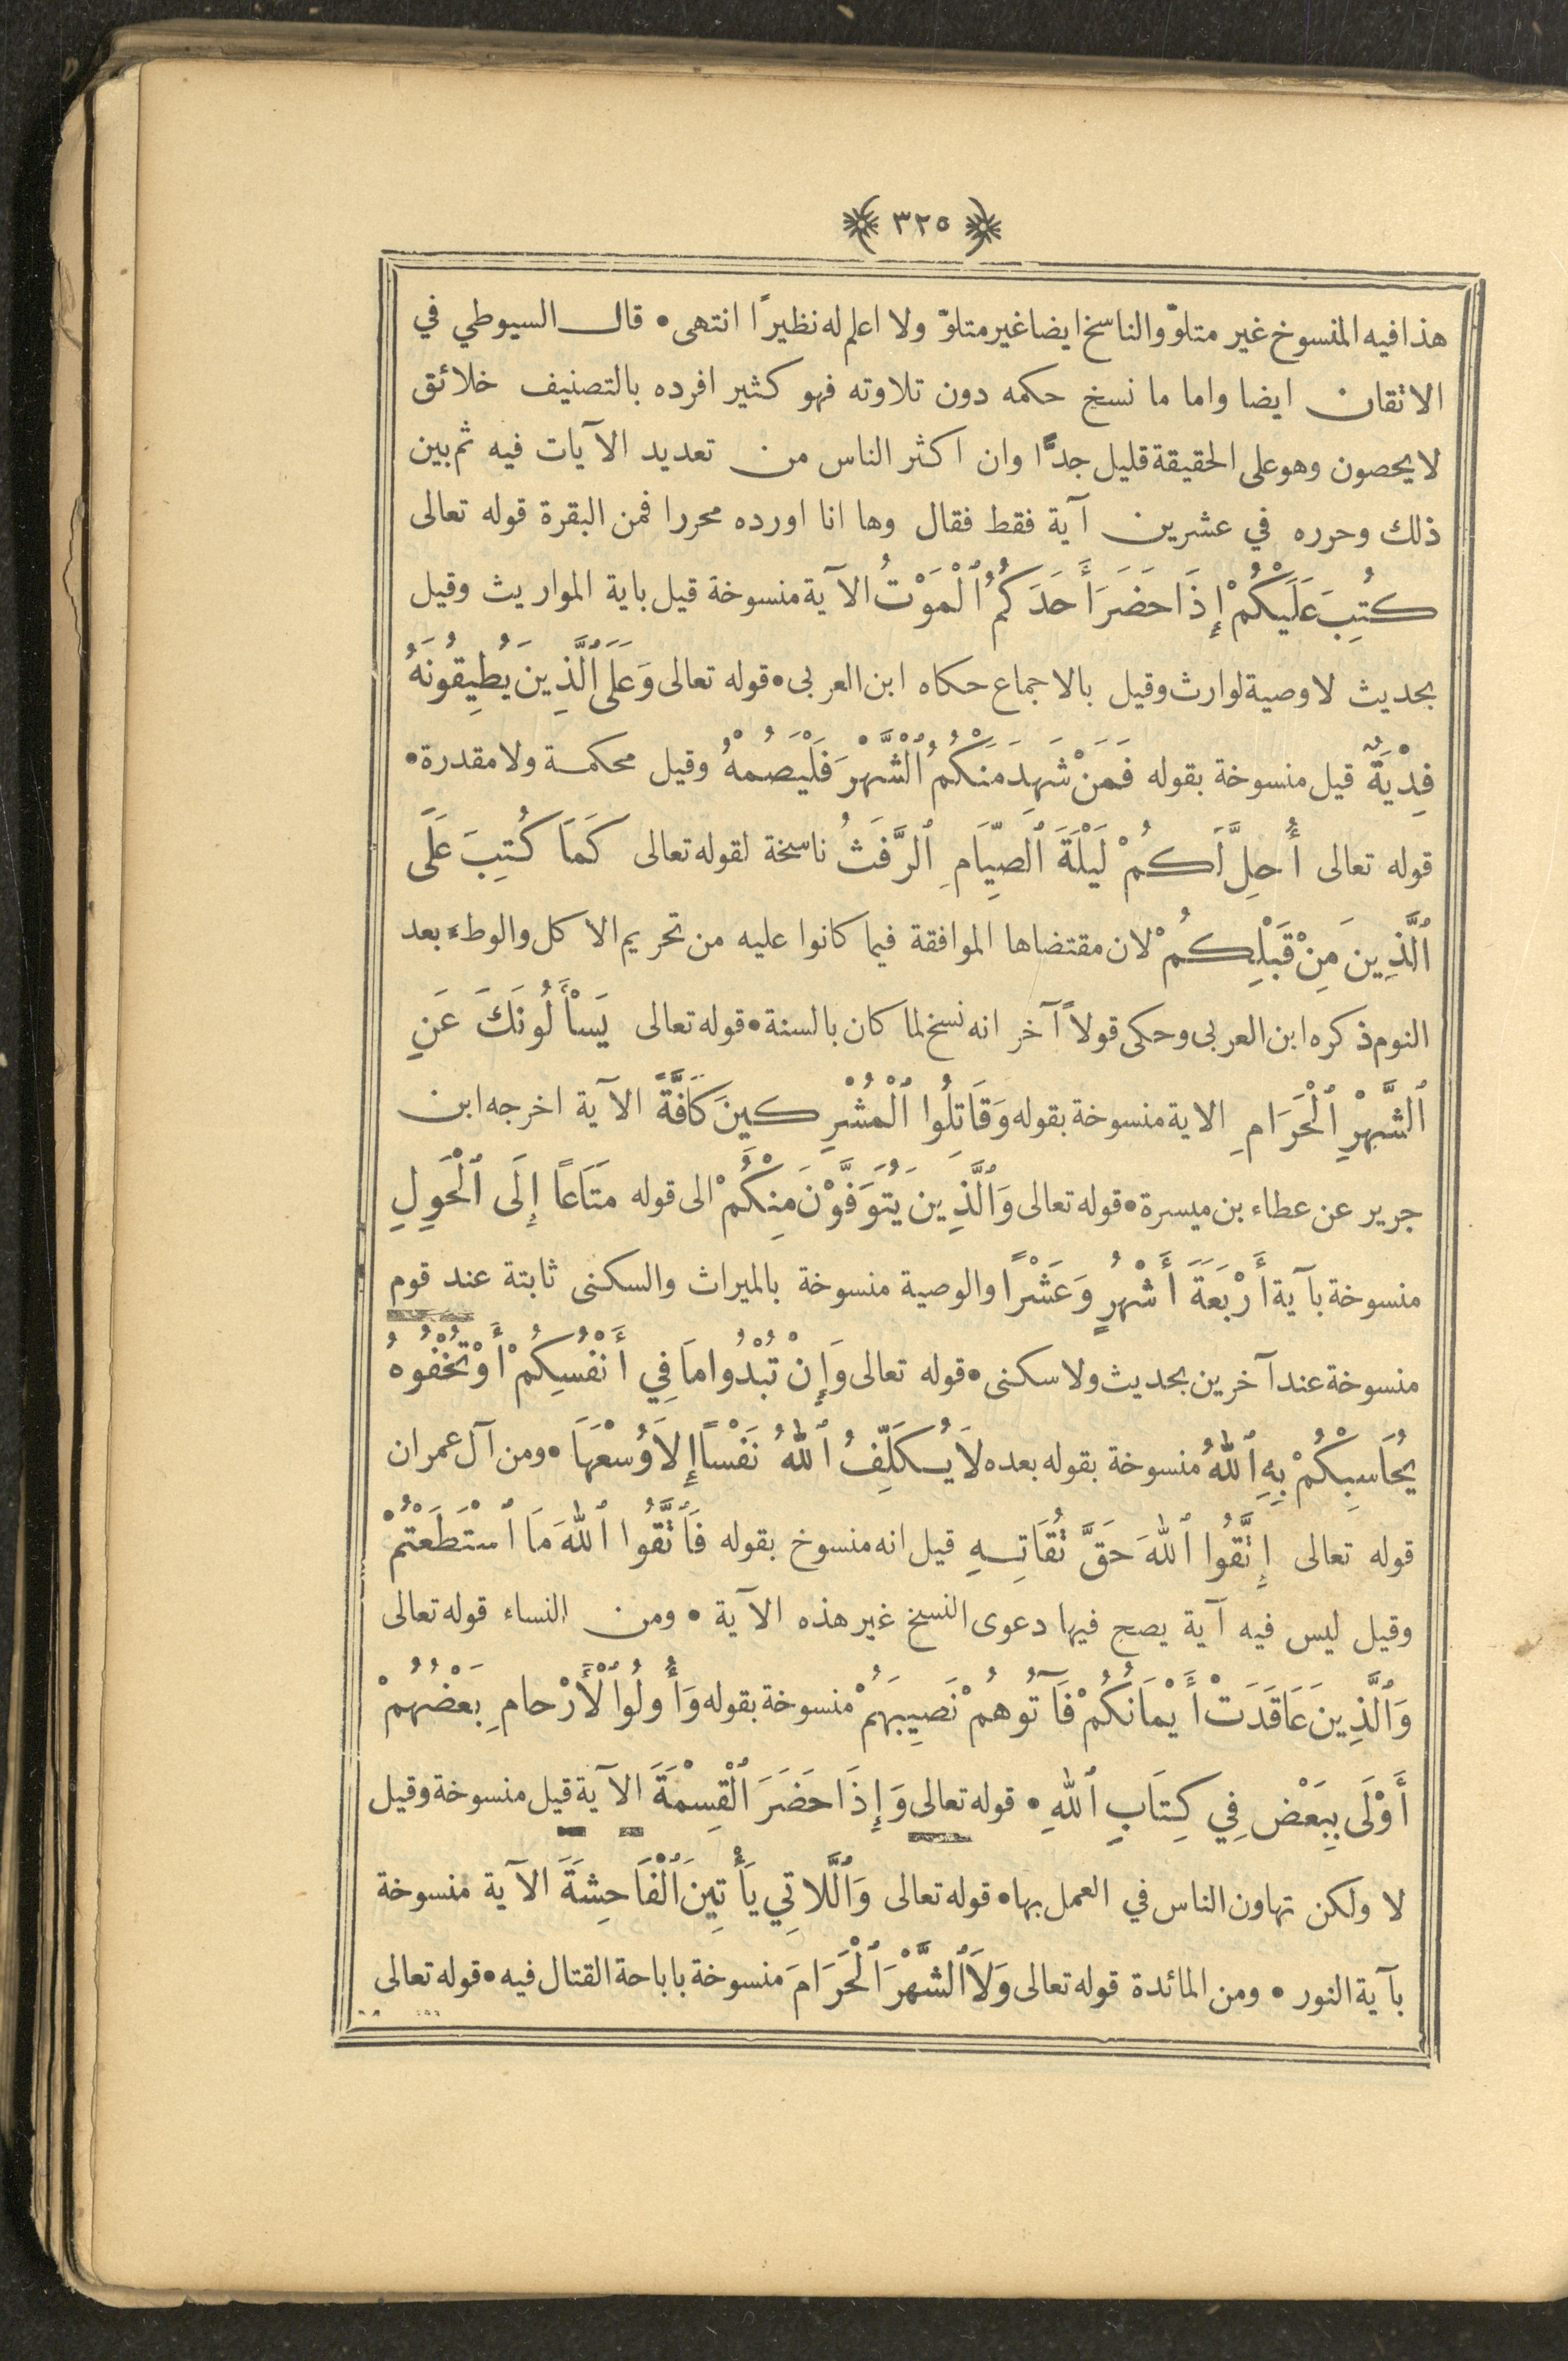 ٣٢٥
هذا فيه المنسوخ غير متلوّ والناسخ ايضا غير متلوّ ولا اعلم له نظيرًا انتهى • قال السيوطي في
الاتقان ايضا واما ما نسخ حكمه دون تلاوته فهو كثير افرده بالتصنيف خلائق
لا يحصون وهو على الحقيقة قليل جدًّا وان اكثر الناس من تعديد الآيات فيه ثم بين
ذلك وحرره في عشرين آية فقط فقال وها انا اورده محررا فمن البقرة قوله تعالى
كُتِبَ عَلَيْكُمْ إِذَا حَضَرَ أَحَدَكُمُ ٱلْمَوْتُ الآية منسوخة قيل باية المواريث وقيل
بحديث لا وصية لوارث وقيل بالاجماع حكاه ابن العربي • قوله تعالى وَعَلَى ٱلَّذِينَ يُطِيقُونَهُ
فِدْيَةٌ قيل منسوخة بقوله فَمَنْ شَهِدَ مِنَكُمُ ٱلْشَّهْرَ فَلْيَصُمْهُ وقيل محكمة ولا مقدرة •
قوله تعالى أُحِلَّ لَكُمْ لَيْلَةَ ٱلصِّيَامِ ٱلرَّفَثُ ناسخة لقوله تعالى كَمَا كُتِبَ عَلَى
ٱلَّذِينَ مِنْ قَبْلِكُمْ لان مقتضاها الموافقة فيما كانوا عليه من تحريم الاكل والوطء بعد
النوم ذكره ابن العربي وحكى قولاً آخر انه نسخ لما كان بالسنة • قوله تعالى يَسْأَلُونَكَ عَنِ
ٱلشَّهْرِ ٱلْحَرَامِ الاية منسوخة بقوله وَقَاتِلُوا ٱلْمُشْرِكِينَ كَافَّةً الآية اخرجه ابن
جرير عن عطاء بن ميسرة • قوله تعالى وَٱلَّذِينَ يُتَوَفَّوْنَ مِنْكُمْ الى قوله مَتَاعًا إِلَى ٱلْحَوِلِ
منسوخة بآية أَرْبَعَةَ أَشْهُرٍ وَعَشْرًا والوصية منسوخة بالميراث والسكنى ثابتة عند قوم
منسوخة عند آخرين بحديث ولا سكنى • قوله تعالى وَإِنْ تُبْدُوا مَا فِي أَنْفُسِكُمْ أَوْ تُخْفُوهُ
يُحَاسِبْكُمْ بِهِ ٱللّٰهُ منسوخة بقوله بعده لَا يُكَلِّفُ ٱللّٰهُ نَفْسًا إِلاَ وُسْعَهَا • ومن آل عمران
قوله تعالى إِتَّقُوا ٱللّٰهَ حَقَّ تُقَاتِهِ قيل انه منسوخ بقوله فَاٱتَّقُوا ٱللّٰهَ مَا ٱسْتَطَعْتُمْ
وقيل ليس فيه آية يصح فيها دعوى النسخ غير هذه الآية • ومن النساء قوله تعالى
وَٱلَّذِينَ عَاقَدَتْ أَيْمَانُكُمْ فَآتُوهُمْ نَصِيبَهُمْ منسوخة بقوله وَأُولُوا ٱلْأَرْحَامِ بَعْضُهُمْ
أَوْلَى بِبَعْضٍ فِي كِتَابِ ٱللّٰهِ • قوله تعالى وَإِذَا حَضَرَ ٱلْقِسْمَةَ الآية قيل منسوخة وقيل
لا ولكن تهاون الناس في العمل بها • قوله تعالى وَٱللَّاتِي يَأْتِينَ ٱلْفَاحِشَةَ الآية منسوخة
بآية النور • ومن المائدة قوله تعالى وَلَا ٱلشَّهْرَ ٱلْحَرَامَ منسوخة باباحة القتال فيه • قوله تعالى